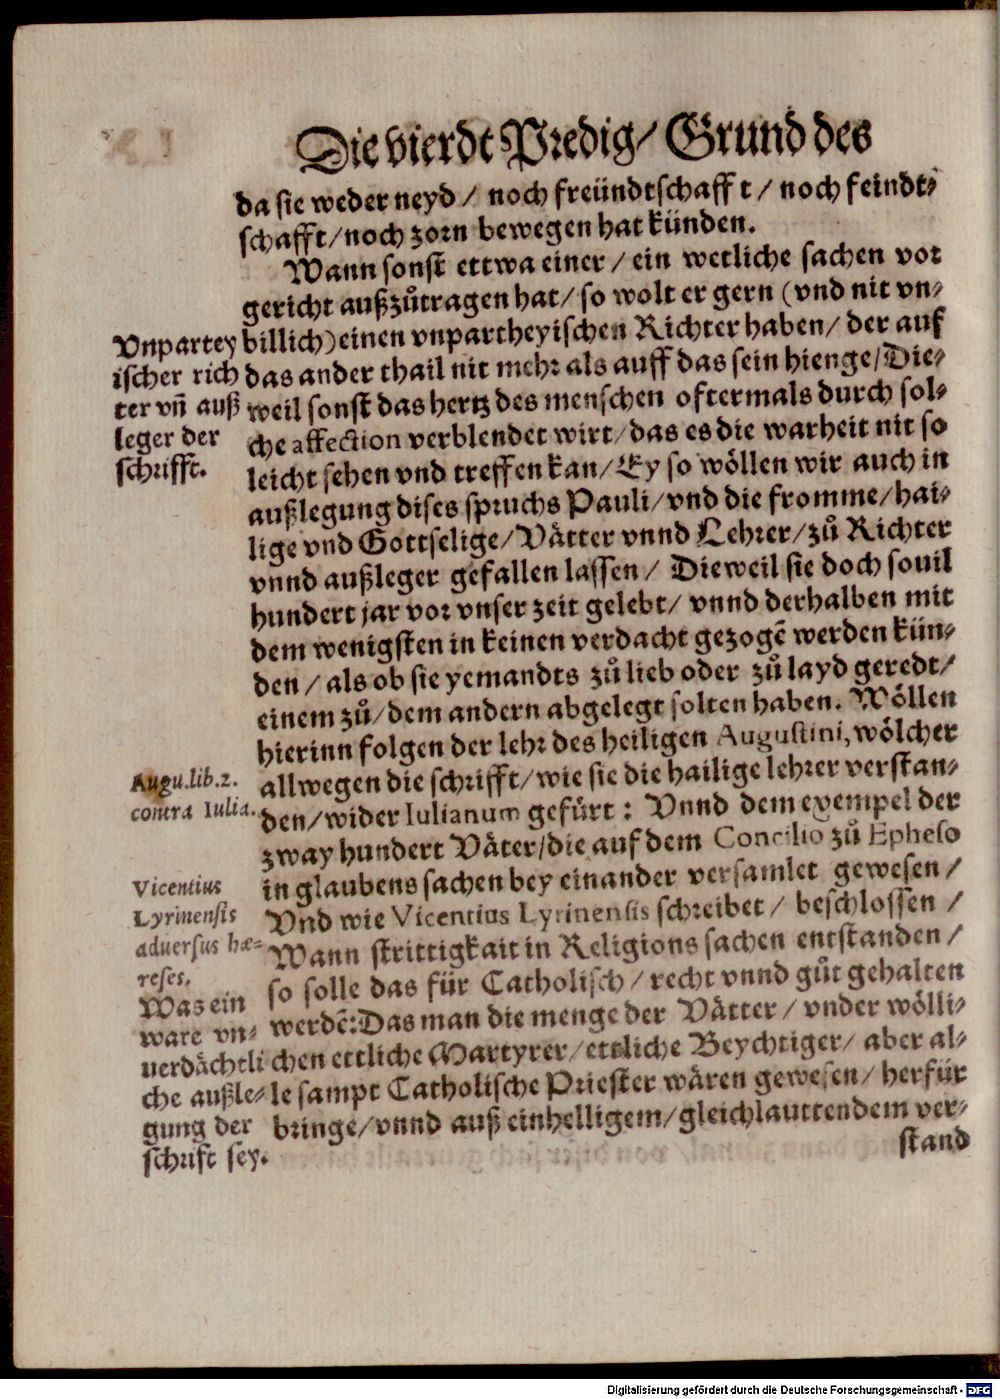 Die vierdt Predig/ Grund des
da sie weder neyd / noch freündtschafft / noch feindt⸗
schafft/noch zorn bewegen hat künden.
Wann sonst ettwa einer / ein wetliche sachen vor
gericht außzůtragen hat/ so wolt er gern (vnd nit vn⸗
billich) einen vnpartheyischen Richter haben/ der auf
das ander thail nit mehr als auff das sein hienge/Die⸗
weil sonst das hertz des menschen oftermals durch sol⸗
che affection verblendet wirt/das es die warheit nit so
leicht sehen vnd treffen kan/ Ey so wöllen wir auch in
außlegung dises spruchs Pauli/vnd die fromme/hai⸗
lige vnd Gottselige/Vätter vnnd Lehrer/zů Richter
vnnd außleger gefallen lassen/ Dieweil sie doch souil
hundert jar vor vnser zeit gelebt/ vnnd derhalben mit
dem wenigsten in keinen verdacht gezogẽ werden kün⸗
den / als ob sie yemandts zů lieb oder zů layd geredt/
einem zů/dem andern abgelegt solten haben. Wöllen
hierinn folgen der lehr des heiligen Augustini, wölcher
allwegen die schrifft/wie sie die hailige lehrer verstan⸗
den/wider Iulianum gefürt: Vnnd dem exempel der
zway hundert Väter/die auf dem Concilio zů Epheso
in glaubens sachen bey einander versamlet gewesen /
Vnd wie Vicentius Lyrinensis schreibet / beschlossen /
Wann strittigkait in Religions sachen entstanden /
so solle das für Catholisch / recht vnnd gůt gehalten
werdẽ: Das man die menge der Vätter / vnder wölli⸗
chen ettliche Martyrer/ettliche Beychtiger/ aber al⸗
le sampt Catholische Priester wären gewesen/ herfür
bringe/vnnd auß einhelligem/gleichlauttendem ver⸗
stand
Vnpartey
ischer rich
ter vñ auß
leger der
schrifft.
Augu.lib.2.
contra Iulia.
Vicentius
Lyrinensis
aduersus hæ⸗
reses.
Was ein
ware vn⸗
uerdächtli
che außle⸗
gung der
schrift sey.
Digitalisierung gefördert durch die Deutsche Forschungsgemeinschaft - DFG